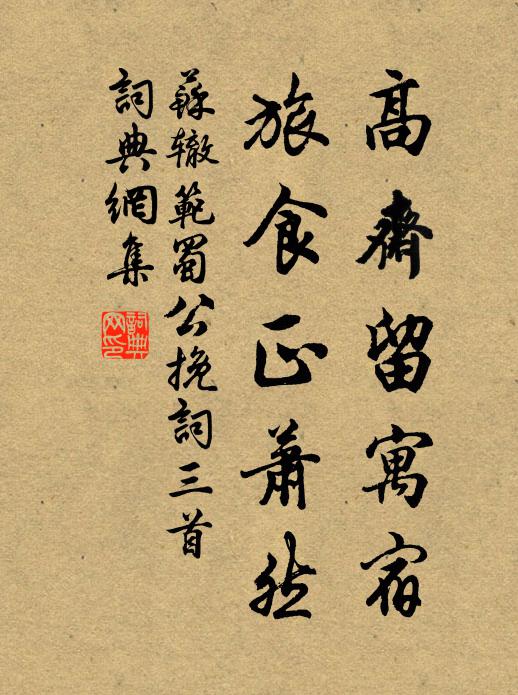 高齋留寓宿
旅食正蕭然
蘇轍範蜀公挽詞三首
詞典網集
詞典網印